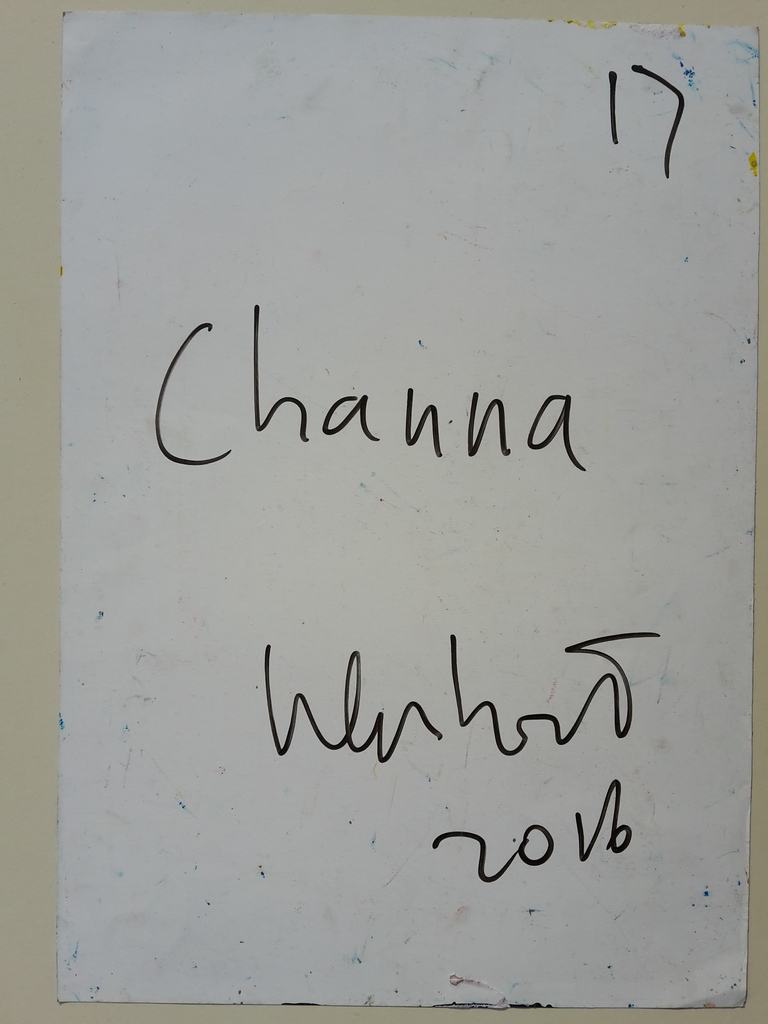 17
Channa
2016